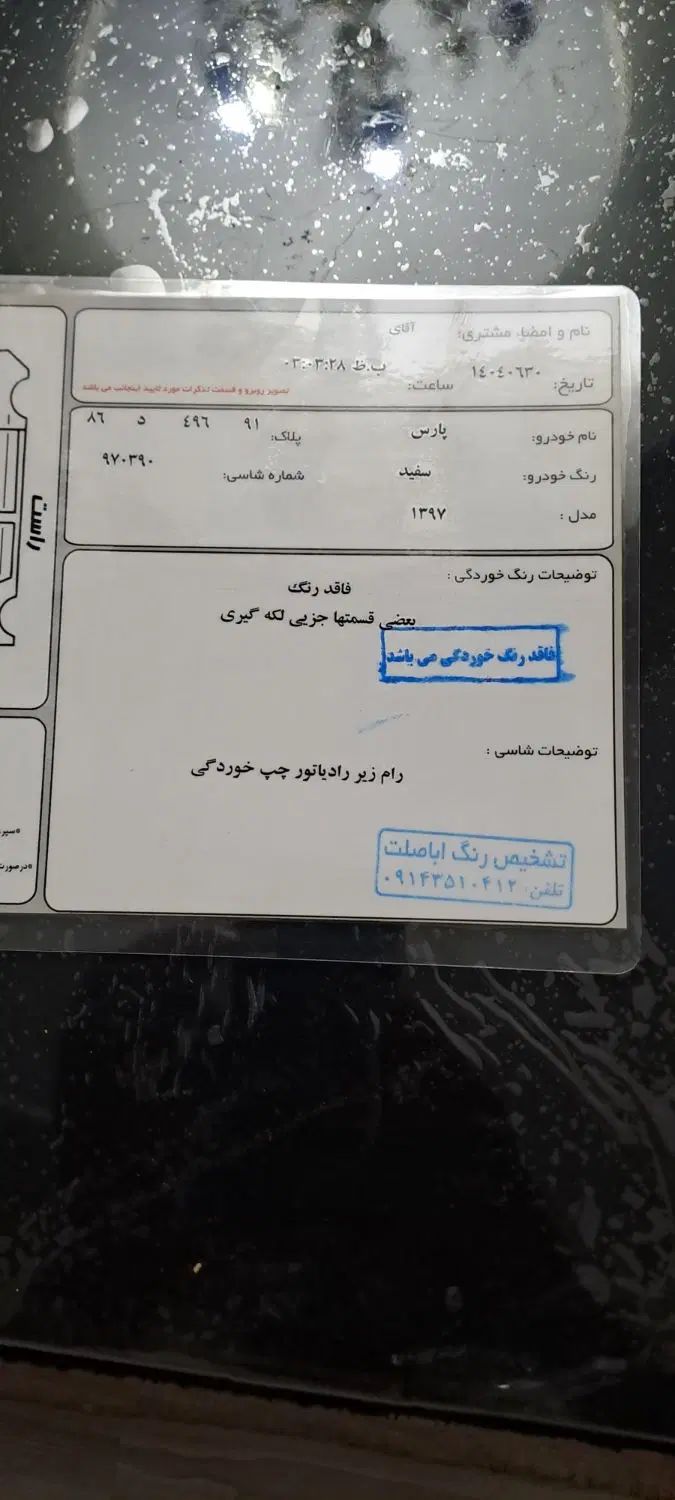 نام و امضاء مشتری: آقای
تاریخ: ۱۴۰۴۰۶۳۰ ساعت: ۰۳:۰۳:۲۸ ب.ظ
تصویر روبرو و قسمت تذکرات مورد تایید اینجانب می باشد
نام خودرو: پارس پلاک: ۹۱ ۴۹۶ د ۸۶
رنگ خودرو: سفید شماره شاسی: ۹۷۰۳۹۰
مدل : ۱۳۹۷
توضیحات رنگ خوردگی :
فاقد رنگ
بعضی قسمتها جزیی لکه گیری
فاقد رنگ خوردگی می باشد
توضیحات شاسی :
رام زیر رادیاتور چپ خوردگی
تشخیص رنگ اباصلت
تلفن: ۰۹۱۴۳۵۱۰۴۱۲
راست